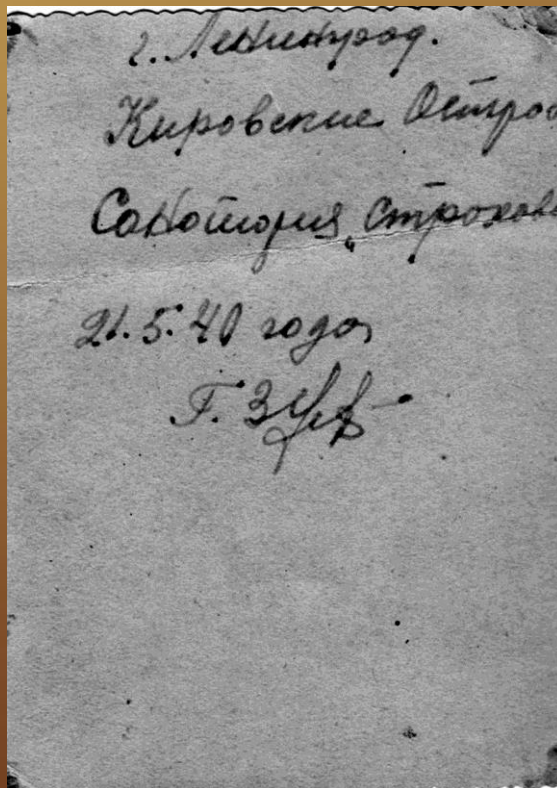 г. Ленинград.
Кировские Остров
Санотория „Строхов
21.5.40 года
Г.